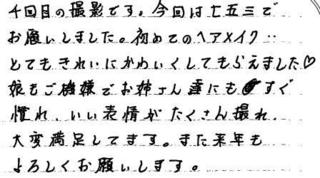 4回目の撮影です。今回は七五三で
お願いしました。初めてのヘアメイク‥
とてもきれいにかわいくしてもらえました♡
娘もご機嫌でお姉さん達にもすぐ
慣れ、いい表情がたくさん撮れ、
大変満足してます。また来年も
よろしくお願いします。